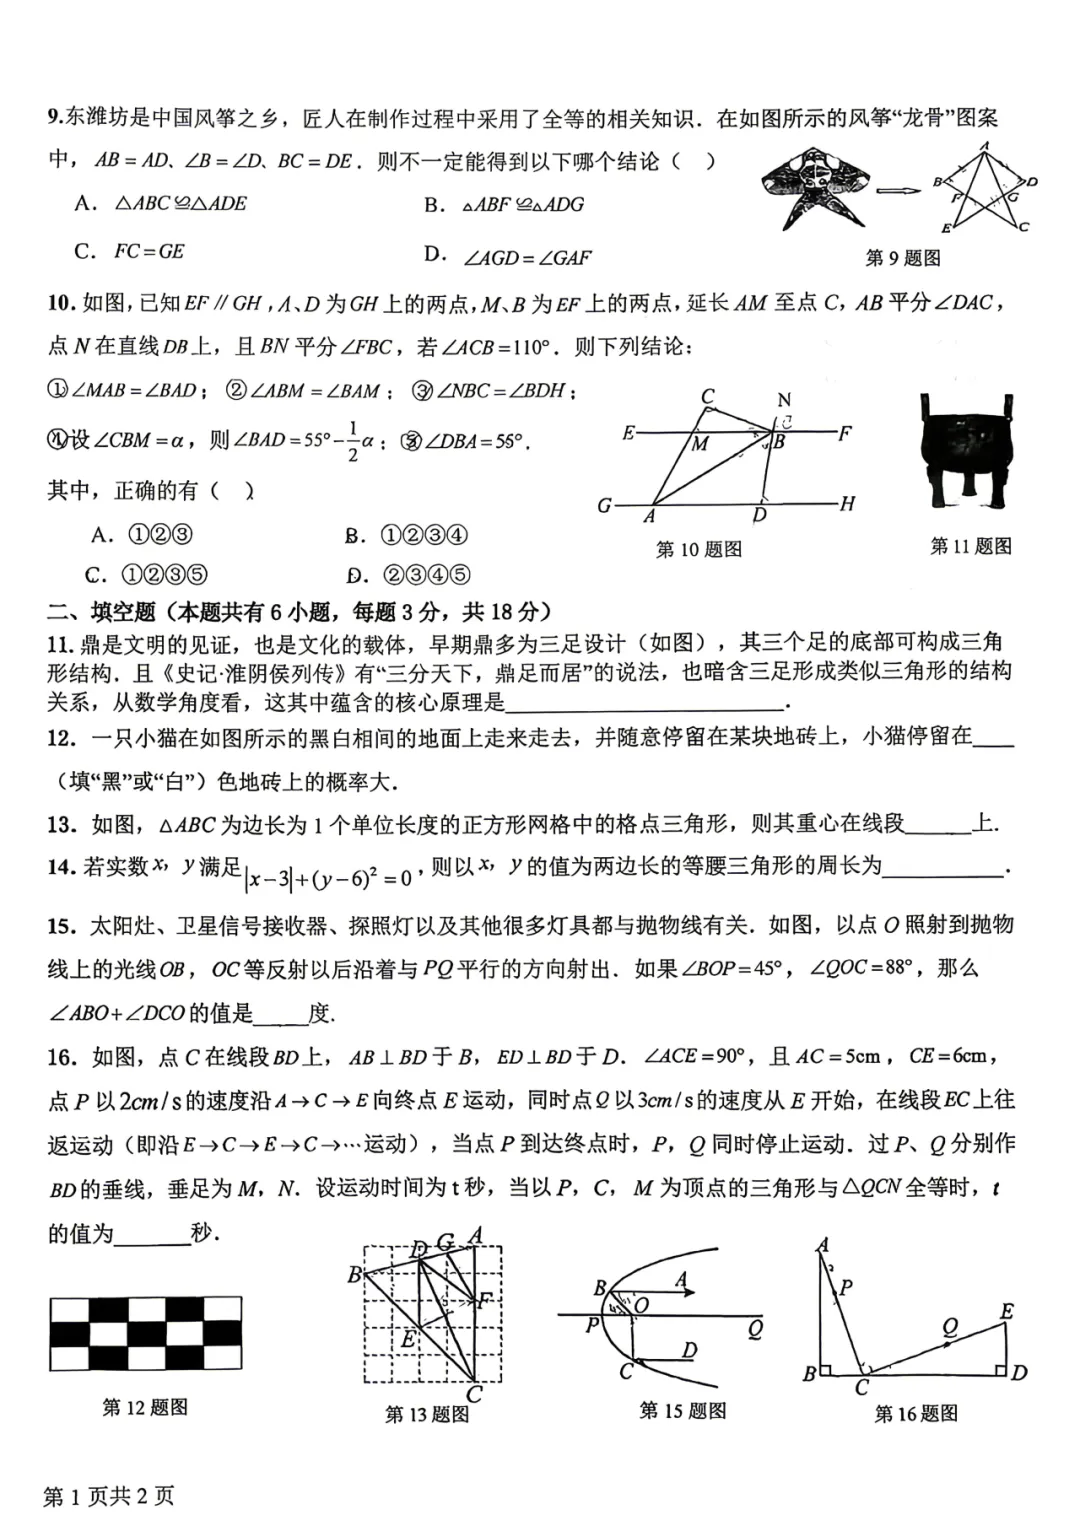 9.东潍坊是中国风筝之乡，匠人在制作过程中采用了全等的相关知识．在如图所示的风筝“龙骨”图案
中，AB = AD、∠B = ∠D、BC = DE．则不一定能得到以下哪个结论（ ）
A．△ABC≌△ADE
B．△ABF≌△ADG
C．FC = GE
D．∠AGD = ∠GAF
A
B
D
F
G
E
C
第 9 题图
10. 如图，已知EF // GH，A、D 为GH 上的两点，M、B 为EF 上的两点，延长 AM 至点 C，AB 平分∠DAC，
点 N 在直线DB上，且 BN 平分∠FBC，若∠ACB =110°．则下列结论：
①∠MAB = ∠BAD；②∠ABM = ∠BAM；③∠NBC = ∠BDH；
④设∠CBM = α，则∠BAD = 55° − 1/2 α；⑤∠DBA = 55°．
其中，正确的有（ ）
A．①②③
B．①②③④
C．①②③⑤
D．②③④⑤
C
N
E
M
B
F
G
A
D
H
第 10 题图
第 11 题图
二、填空题（本题共有 6 小题，每题 3 分，共 18 分）
11. 鼎是文明的见证，也是文化的载体，早期鼎多为三足设计（如图），其三个足的底部可构成三角
形结构．且《史记·淮阴侯列传》有“三分天下，鼎足而居”的说法，也暗含三足形成类似三角形的结构
关系，从数学角度看，这其中蕴含的核心原理是______．
12．一只小猫在如图所示的黑白相间的地面上走来走去，并随意停留在某块地砖上，小猫停留在____
（填“黑”或“白”）色地砖上的概率大．
13．如图，△ABC 为边长为 1 个单位长度的正方形网格中的格点三角形，则其重心在线段______上.
14. 若实数 x，y 满足|x−3|+(y−6)²=0，则以 x，y 的值为两边长的等腰三角形的周长为______．
15．太阳灶、卫星信号接收器、探照灯以及其他很多灯具都与抛物线有关．如图，以点 O 照射到抛物
线上的光线OB，OC等反射以后沿着与 PQ平行的方向射出．如果∠BOP = 45°，∠QOC = 88°，那么
∠ABO+∠DCO的值是____度.
16．如图，点 C 在线段BD上，AB⊥BD于 B，ED⊥BD于 D．∠ACE = 90°，且 AC = 5cm，CE = 6cm，
点 P 以 2cm/s的速度沿 A→C→E向终点 E 运动，同时点Q 以3cm/s的速度从 E 开始，在线段EC上往
返运动（即沿E→C→E→C→…运动），当点 P 到达终点时，P，Q 同时停止运动．过 P、Q 分别作
BD的垂线，垂足为 M，N．设运动时间为 t 秒，当以 P，C，M 为顶点的三角形与△QCN全等时，t
的值为______秒．
第 12 题图
D
G
A
B
F
E
C
第 13 题图
B
A
O
P
Q
D
C
第 15 题图
A
P
E
Q
B
C
D
第 16 题图
第 1 页共 2 页